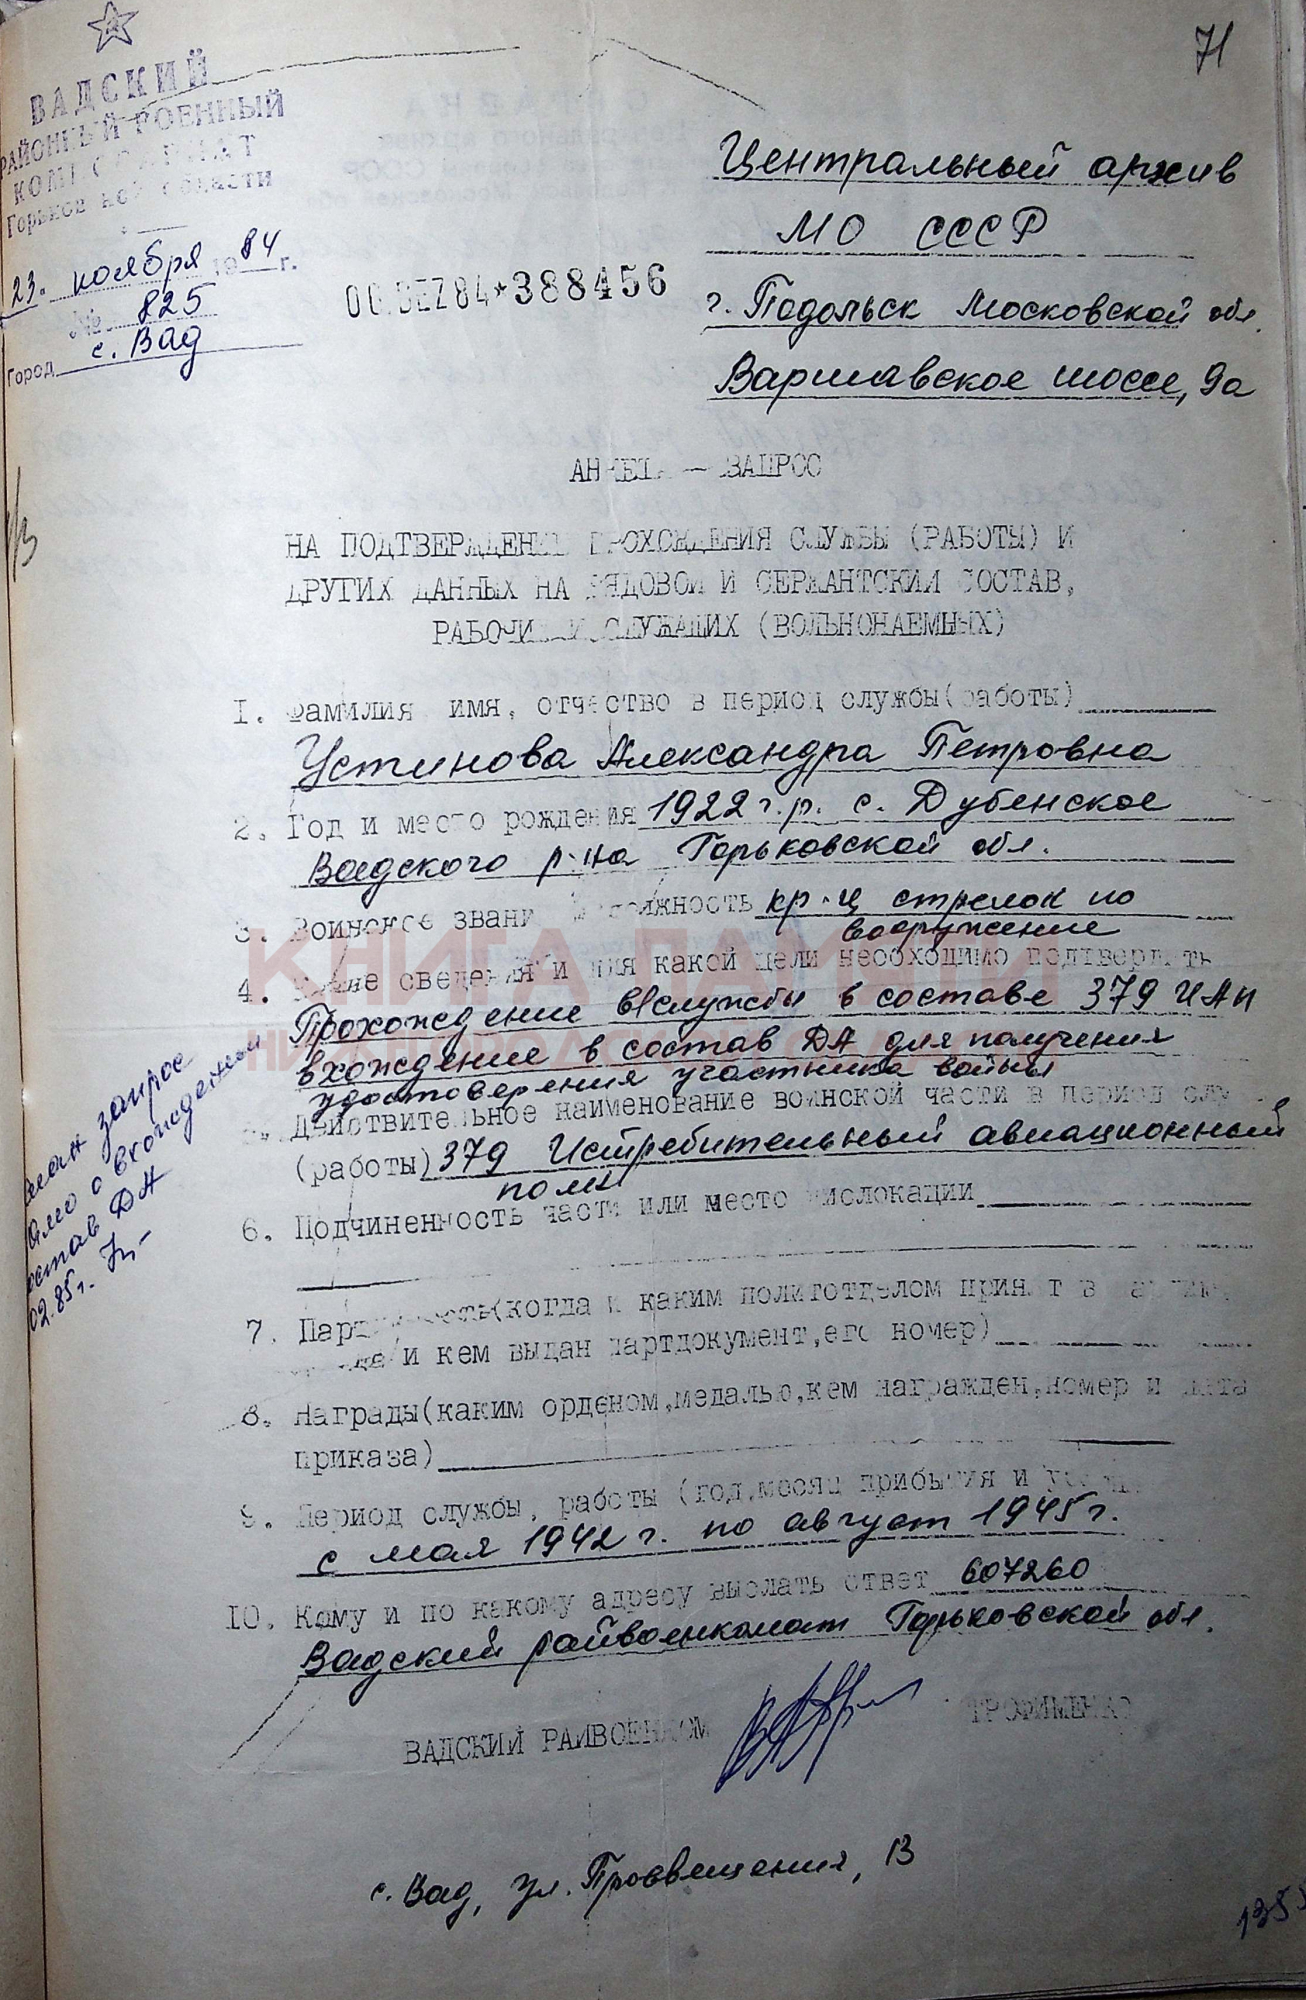 71
ВАДСКИЙ
РАЙОННЫЙ ВОЕННЫЙ
КОМИССАРИАТ
Горьковской области
23. ноября 1984 г.
№ 825
Город с. Вад
DEZ84*388456
Центральный архив
МО СССР
г. Подольск Московской обл.
Варшавское шоссе, 9а
АНКЕТА — ЗАПРОС
НА ПОДТВЕРЖДЕНИЕ ПРОХОЖДЕНИЯ СЛУЖБЫ (РАБОТЫ) И
ДРУГИХ ДАННЫХ НА РЯДОВОЙ И СЕРЖАНТСКИЙ СОСТАВ,
РАБОЧИХ И СЛУЖАЩИХ (ВОЛЬНОНАЕМНЫХ)
I. Фамилия имя, отчество в период службы(работы)
Устинова Александра Петровна
2. Год и место рождения 1922 г.р. с. Дубенское
Вадского р-на Горьковской обл.
3. Воинское звание должность кр-ц стрелок по
вооружение
4. Какие сведения и для какой цели необходимо подтвердить
Прохождение в/службы в составе 379 ИАП
вхождение в состав ДА для получения
удостоверения участника войны
5. Действительное наименование воинской части в период
(работы) 379 Истребительный авиационный
полк
6. Подчиненность части или место дислокации
7. Партийность(когда и каким политотделом принят в партию,
когда и кем выдан партдокумент,его номер)
8. Награды(каким орденом,медалью,кем награжден,номер и дата
приказа)
9. Период службы, работы (год,месяц прибытия и
с мая 1942 г. по август 1945 г.
10. Кому и по какому адресу выслать ответ 607260
Вадский райвоенкомат Горьковской обл.
ВАДСКИЙ РАЙВОЕНКОМ ТРОФИМЕНКО
с. Вад, ул. Просвещения, 13
запрос
о вхождении
состав ДА
02.85 г.
КНИГА ПАМЯТИ
НИЖЕГОРОДСКОЙ ОБЛАСТИ